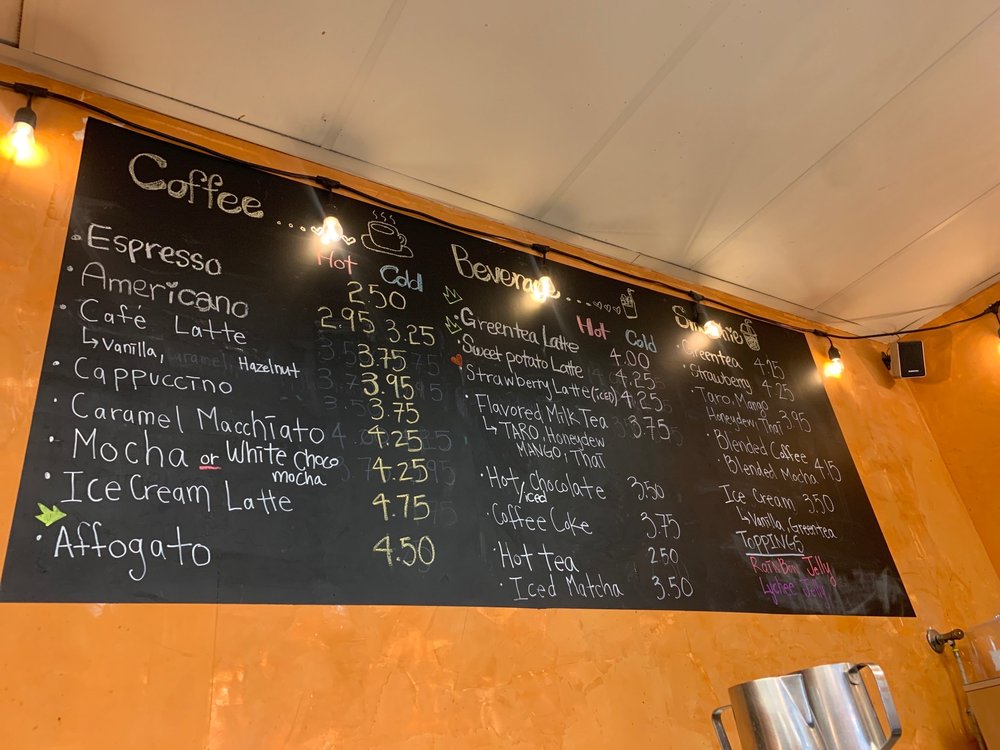 Coffee
Hot Cold
Espresso 2.50
Americano 2.95 3.25
Café Latte 3.75
↳ Vanilla, Hazelnut 3.95
Cappuccino 3.75
Caramel Macchiato 4.25
Mocha or White Choco mocha 4.25
Ice Cream Latte 4.75
Affogato 4.50
Beverage
Hot Cold
Greentea Latte 4.00
Sweet potato Latte 4.25
Strawberry Latte (iced) 4.25
Flavored Milk Tea 3.75
↳ TARO, Honeydew
MANGO, Thai
Hot/iced Chocolate 3.50
Coffee Coke 3.75
Hot tea 2.50
Iced Matcha 3.50
Smoothie
Greentea 4.95
Strawberry 4.25
Taro, Mango
Honeydew, Thai 3.95
Blended Coffee
Blended Mocha 4.15
Ice Cream 3.50
↳ Vanilla, Greentea
TOPPINGS
Rainbow Jelly
Lychee Jelly